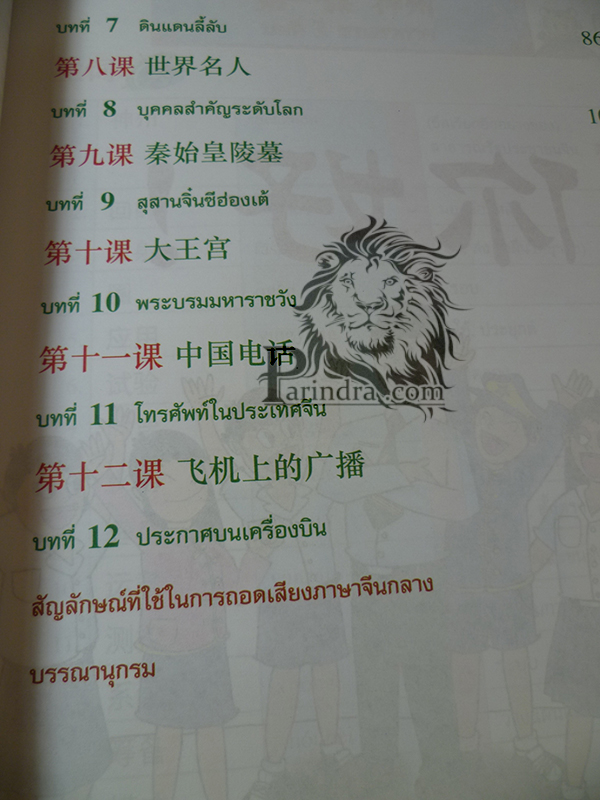 บทที่ 7 ดินแดนลี้ลับ
86
第八课 世界名人
บทที่ 8 บุคคลสำคัญระดับโลก
第九课 秦始皇陵墓
บทที่ 9 สุสานจิ๋นซีฮ่องเต้
第十课 大王宫
บทที่ 10 พระบรมมหาราชวัง
第十一课 中国电话
Parindra.com
บทที่ 11 โทรศัพท์ในประเทศจีน
第十二课 飞机上的广播
บทที่ 12 ประกาศบนเครื่องบิน
สัญลักษณ์ที่ใช้ในการถอดเสียงภาษาจีนกลาง
บรรณานุกรม